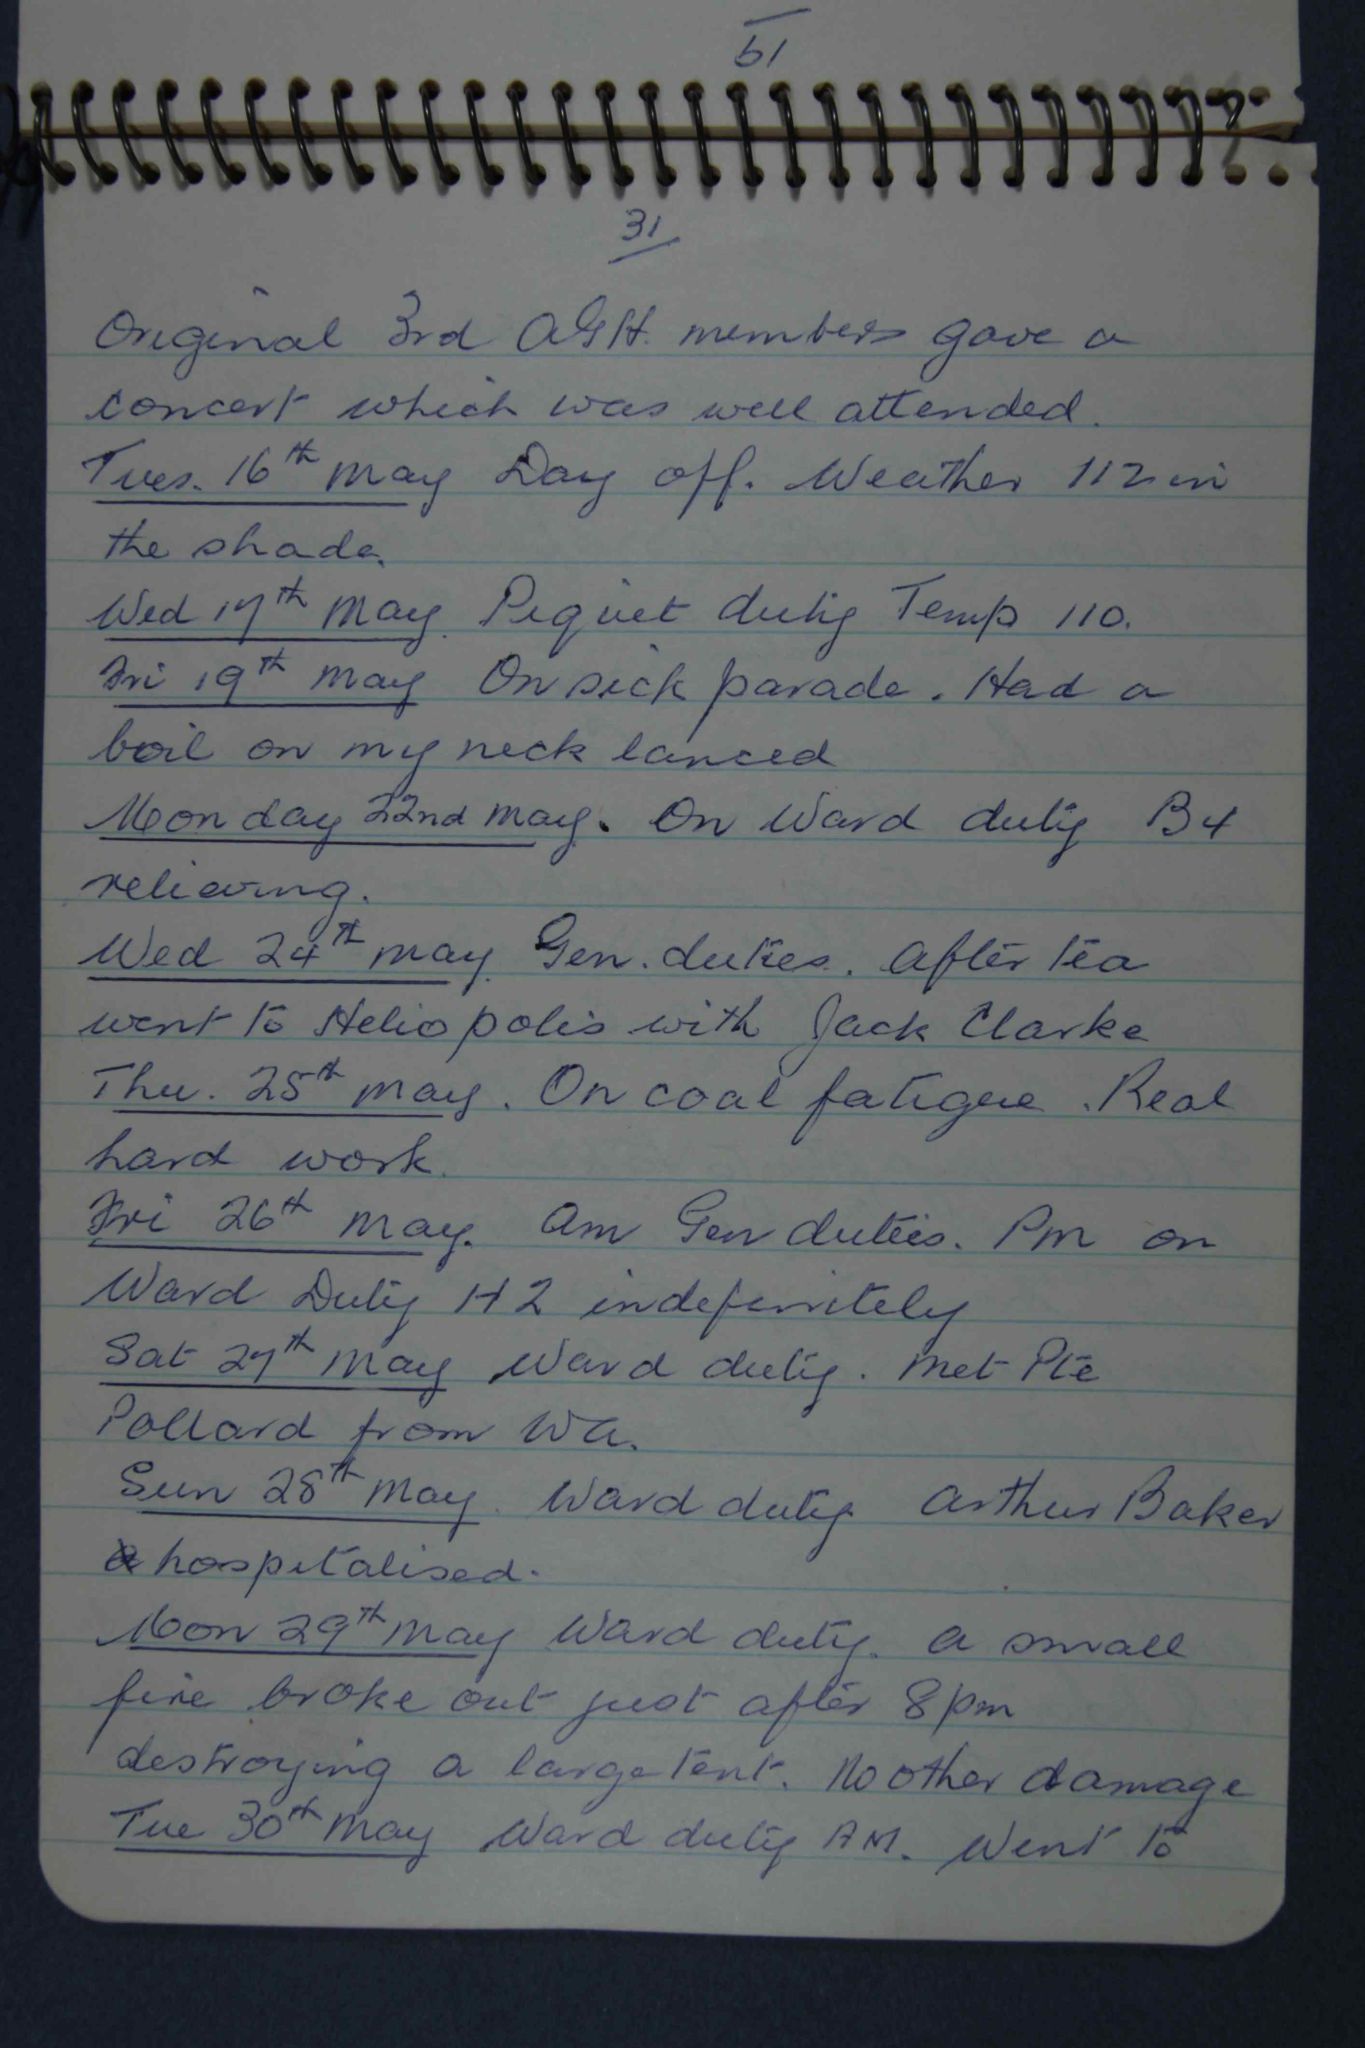 61
31
Original 3rd AGH. members gave a
concert which was well attended.
Tues. 16th May Day off. Weather 112 in
the shade.
Wed 17th May. Piquet duty Temp 110.
Fri 19th May On sick parade. Had a
boil on my neck lanced
Monday 22nd May. On Ward duty B4
relieving.
Wed 24th May. Gen. duties. After tea
went to Heliopolis with Jack Clarke
Thu. 25th May. On coal fatigue. Real
hard work.
Fri 26th May. Am Gen duties. Pm on
Ward Duty H2 indefinitely
Sat 27th May Ward duty. Met Pte
Pollard from WA.
Sun 28th May. Ward duty. Arthur Baker
hospitalised.
Mon 29th May Ward duty. A small
fire broke out just after 8pm
destroying a large tent. No other damage
Tue 30th May Ward duty AM. Went to